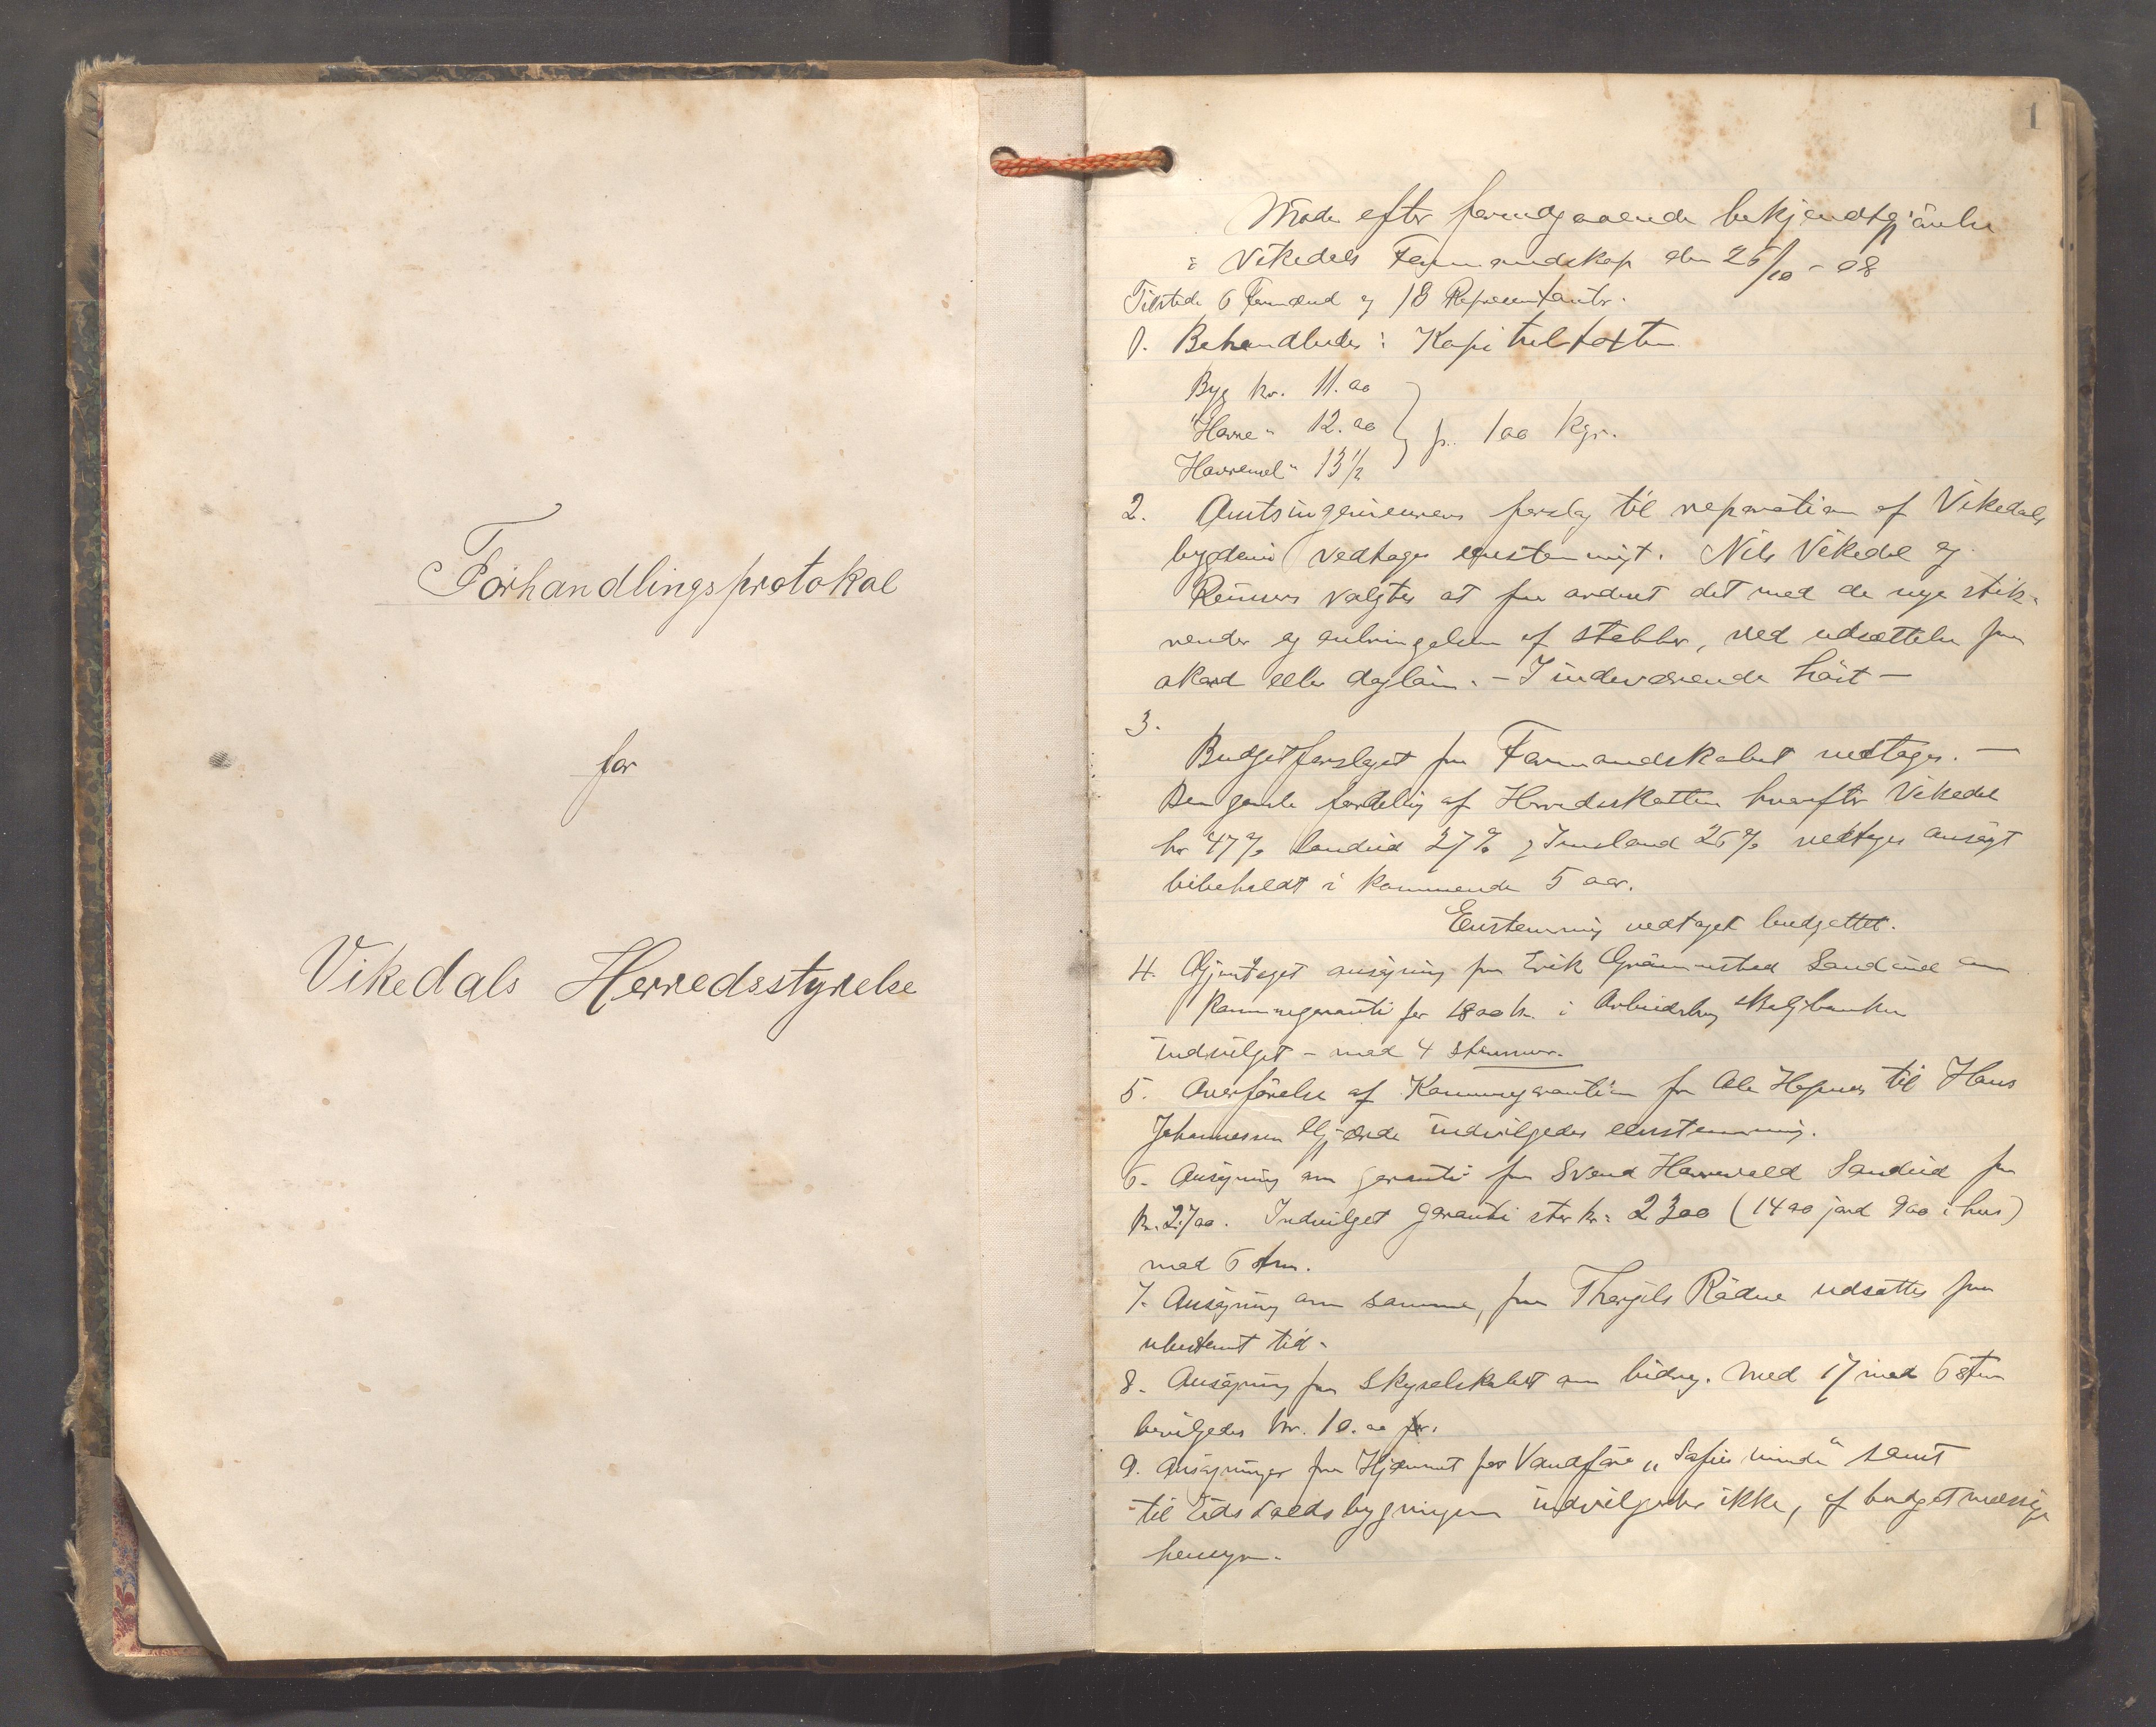 Forhandlingsprotokol
for
Vikedals Herredsstyrelse
1
Møde efter forudgaaende bekjendtgjørelse
i Vikedals Formandskap den 26/10 - 08
Tilstede 6 Formænd og 18 Repræsentanter.
1. Behandledes: Kapitelstaxten
Byg kr. 11.00
Havre " 12.00 pr. 100 kgr.
Havremel " 13 1/2
2. Amtsingeniørens forslag til reparation af Vikedals
vedtages enstemmigt. Nils Vikedal og
valgtes at faa ordnet det med de nye stik-
render og anbringelsen af stabber, ved udsættelse paa
akord eller dagløn. - I indeværende høst -
3.
Budgetforslaget fra Formandskabet vedtages. -
Den gamle fordeling af Herredsskatten hvorefter Vikedal
har 47% Sandeid 27% og Imsland 26% vedtages ansøgt
bibeholdt i kommende 5 aar.
Enstemmig vedtaget budgettet.
4. Gjentaget ansøgning fra Erik Sandeid om
Kommunegaranti for 1800 kr. i Arbeiderbrug
indvilget - med 4 stemmer.
5. Overførelse af Kommunegarantien fra Ole til Hans
Johannessen indvilgedes eenstemmig.
6. Ansøgning om garanti fra Svend Sandeid for
kr. 2700. Indvilget garanti stor kr. 2300 (1400 i jord 900 i hus)
med 6 stm.
7. Ansøgning om samme, fra Thorgils Rødne udsættes paa
ubestemt tid.
8. Ansøgning fra Skydselskabet om bidrag. Med 17 mod 6 stm
bevilgedes kr. 10.00
9. Ansøgninger fra Hjemmet for Vanføre "Sofies minde" samt
til Eidsvoldsbygningen indvilgedes ikke, af budgetmæssige
hensyn.